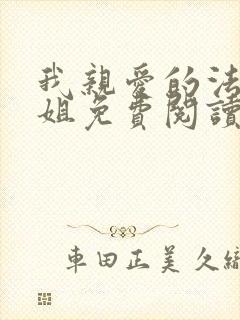 我親愛的法
姐免費閱讀
車田正美 久織